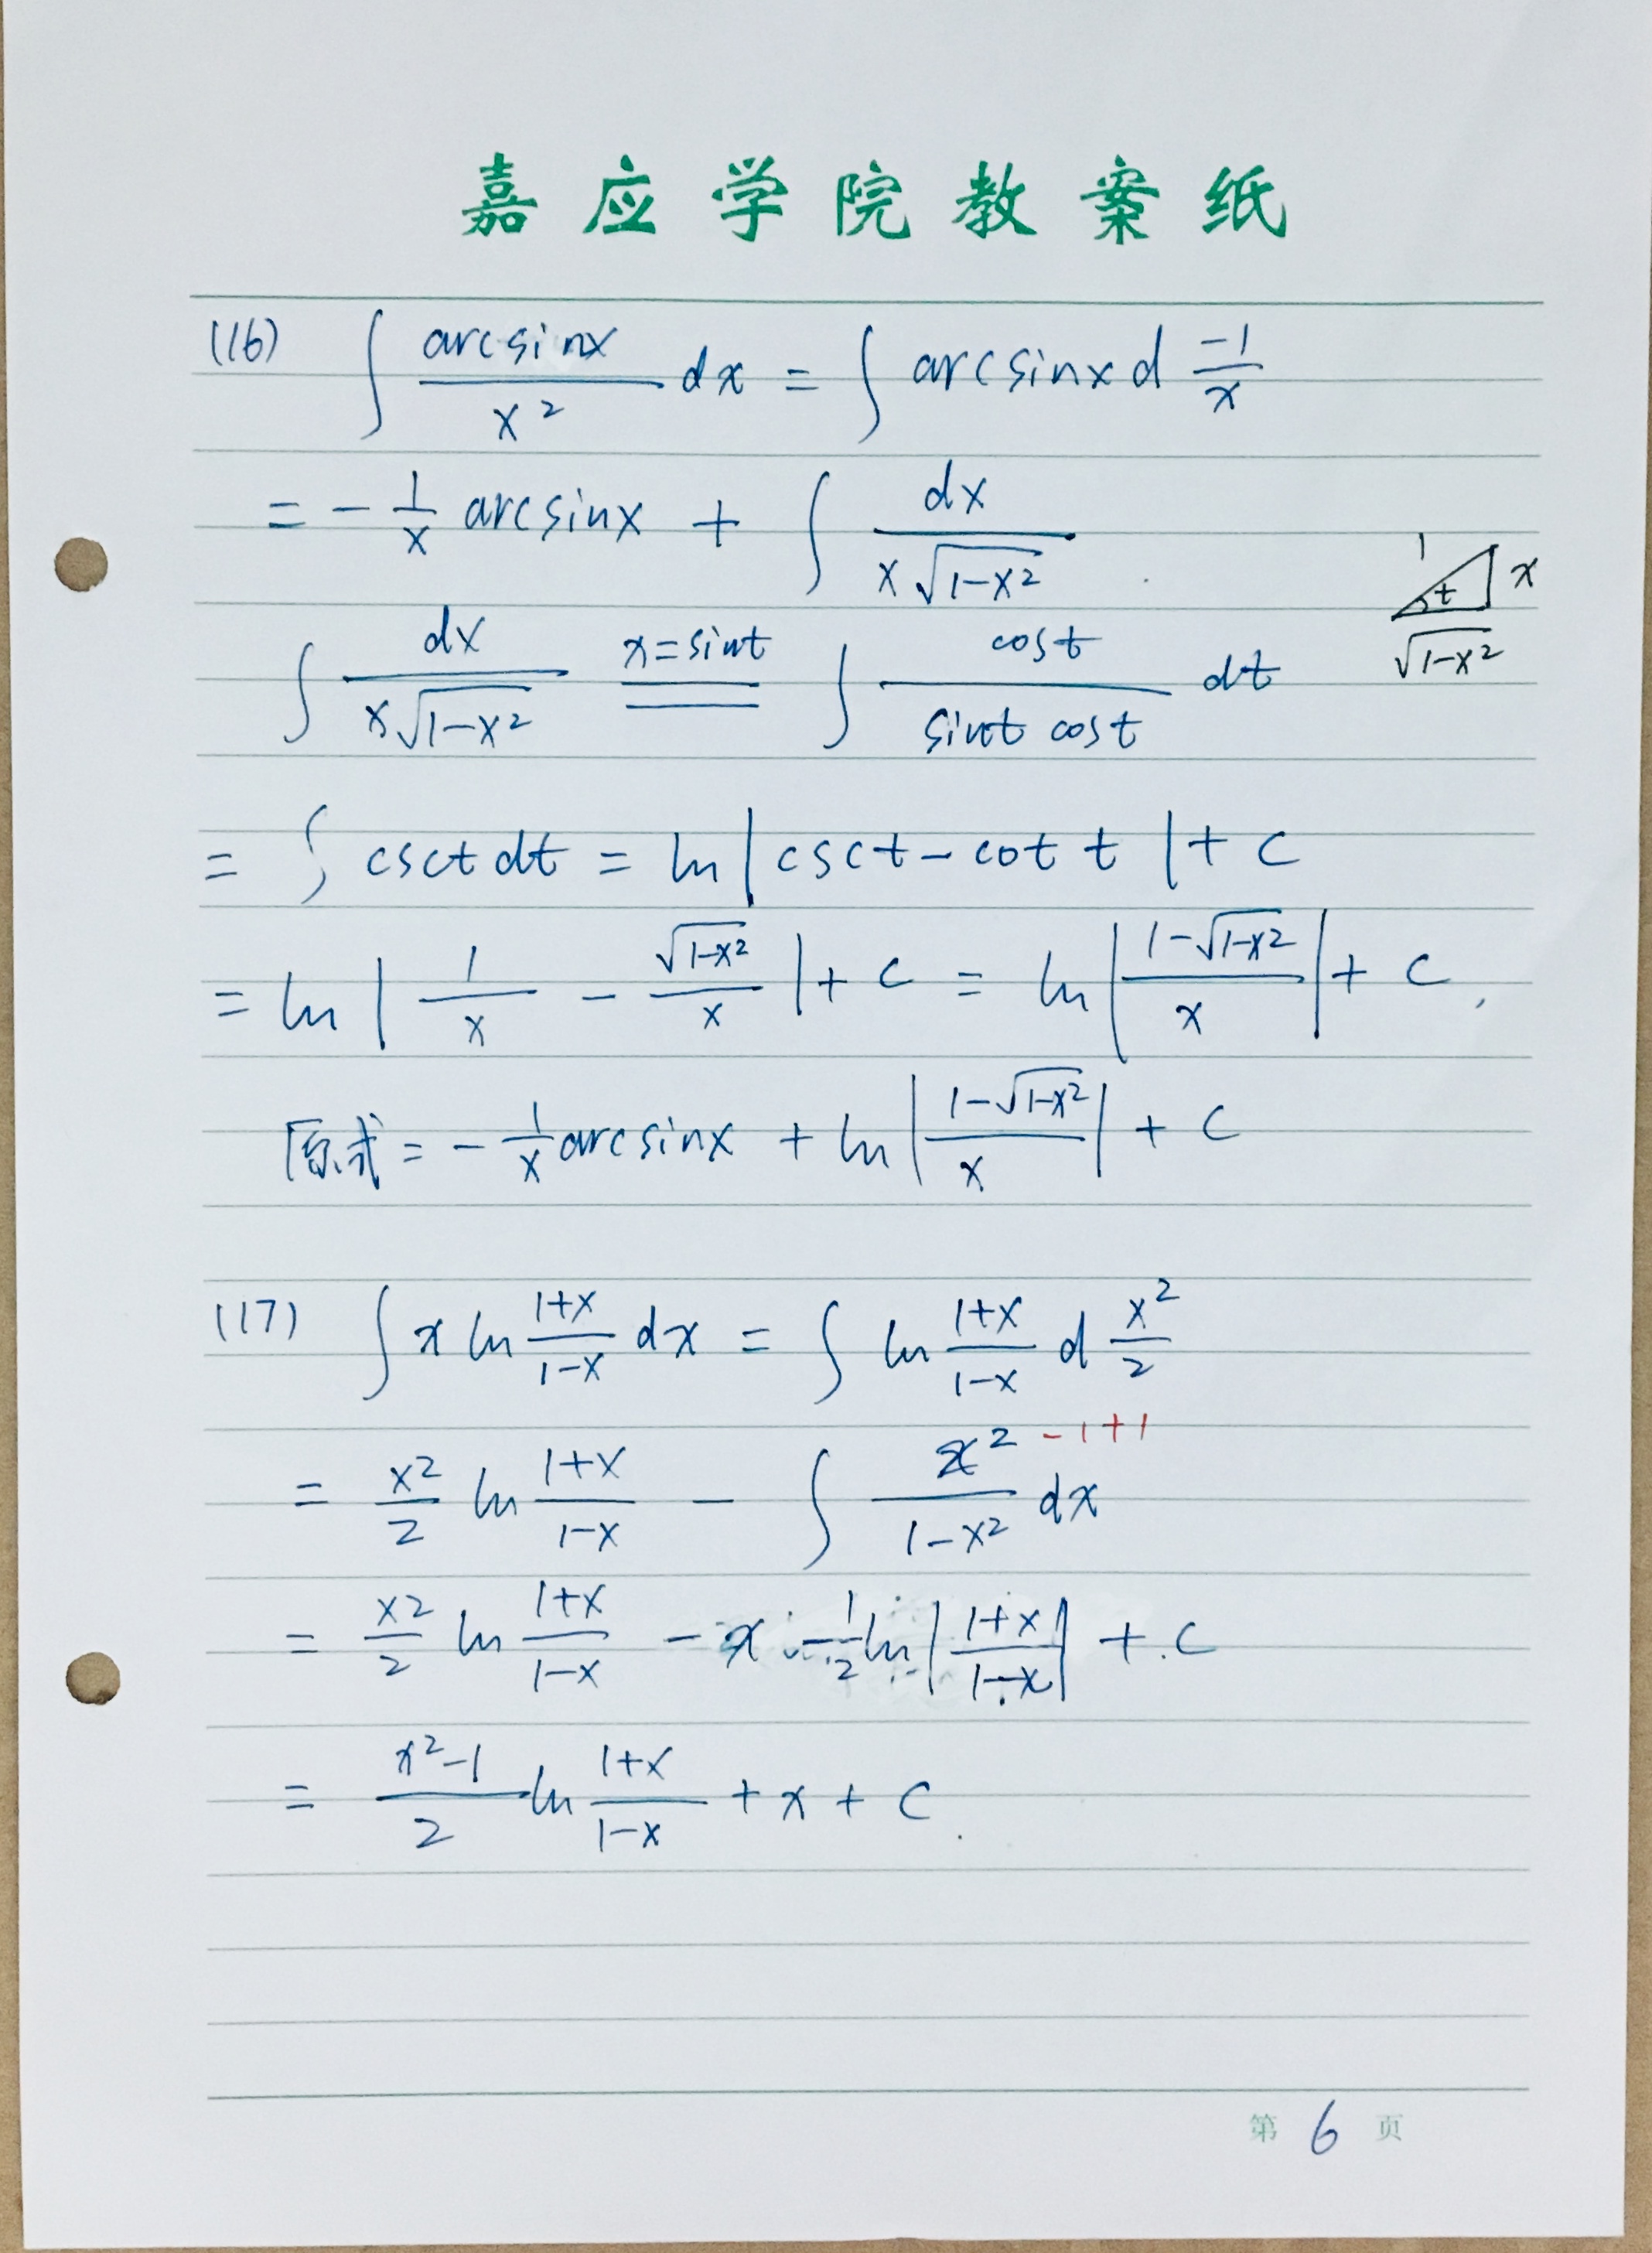 嘉应学院教案纸
(16) ∫ arcsinx / x² dx = ∫ arcsinx d -1/x
= - 1/x arcsinx + ∫ dx / (x√(1-x²))
1 t x √(1-x²)
∫ dx / (x√(1-x²)) x=sint ∫ cost / (sint cost) dt
= ∫ csct dt = ln | csct - cot t | + C
= ln | 1/x - √(1-x²)/x | + C = ln | (1-√(1-x²))/x | + C,
原式 = - 1/x arcsinx + ln | (1-√(1-x²))/x | + C
(17) ∫ x ln (1+x)/(1-x) dx = ∫ ln (1+x)/(1-x) d x²/2
= x²/2 ln (1+x)/(1-x) - ∫ (x² -1+1)/(1-x²) dx
= x²/2 ln (1+x)/(1-x) - x - 1/2 ln | (1+x)/(1-x) | + C
= (x²-1)/2 ln (1+x)/(1-x) + x + C.
第 6 页